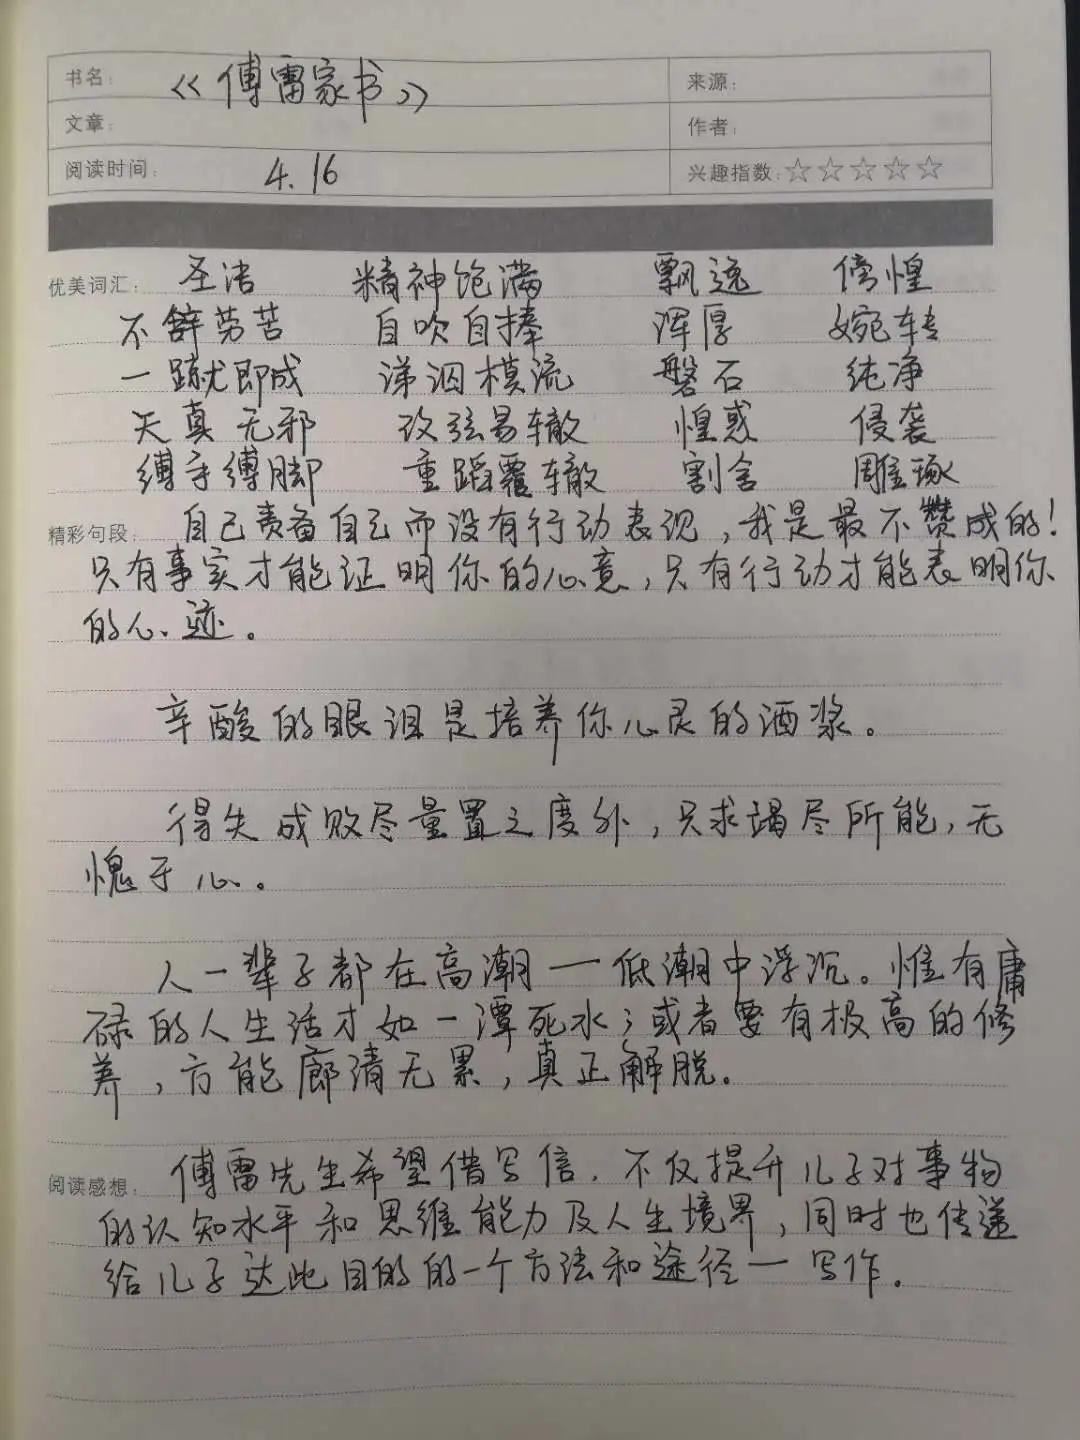 书名: 《傅雷家书》 来源:
文章: 作者:
阅读时间: 4.16 兴趣指数:☆☆☆☆☆
优美词汇: 圣洁 精神饱满 飘逸 傍惶
不辞劳苦 自吹自捧 浑厚 婉转
一蹴即成 涕泗模流 磐石 纯净
天真无邪 改弦易辙 惶惑 侵袭
缚手缚脚 重蹈覆辙 割舍 雕琢
精彩句段: 自己责备自己而没有行动表现,我是最不赞成的!
只有事实才能证明你的心意,只有行动才能表明你
的心迹。
辛酸的眼泪是培养你心灵的酒浆。
得失成败尽量置之度外,只求竭尽所能,无
愧于心。
人一辈子都在高潮—低潮中浮沉。惟有庸
碌的人生活才如一潭死水;或者要有极高的修
养,方能廊清无累,真正解脱。
阅读感想: 傅雷先生希望借写信,不仅提升儿子对事物
的认知水平和思维能力及人生境界,同时也传递
给儿子达此目的的一个方法和途径—写作.